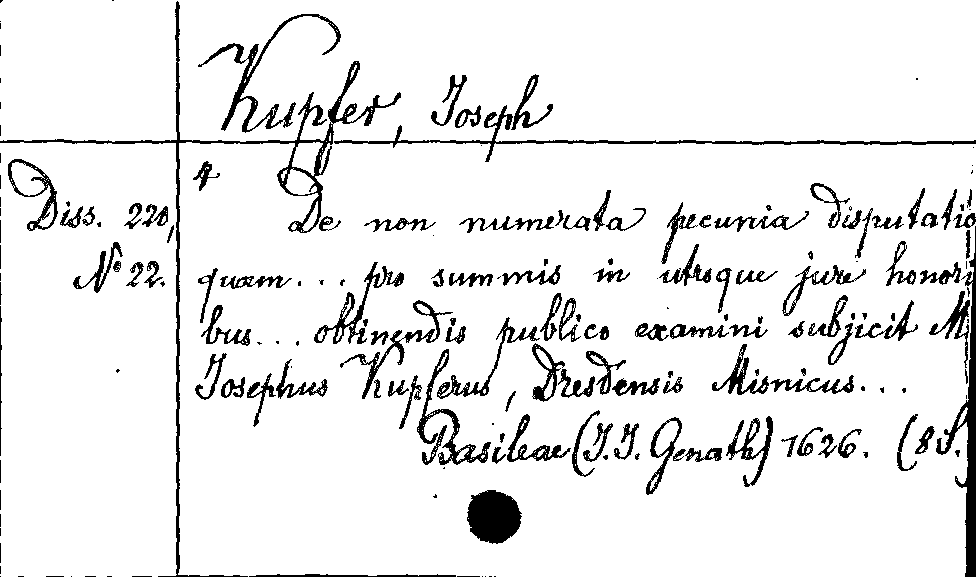 Kupfer, Joseph
4
Diss. 220,
De non numerata pecunia disputatio
No 22.
quam... pro summis in utroque jure honori
bus... obtinendis publico examini subjicit M
Josephus Kupferus, Dresdensis Misnicus...
Basileae (J. J. Genath) 1626. (8 S.)